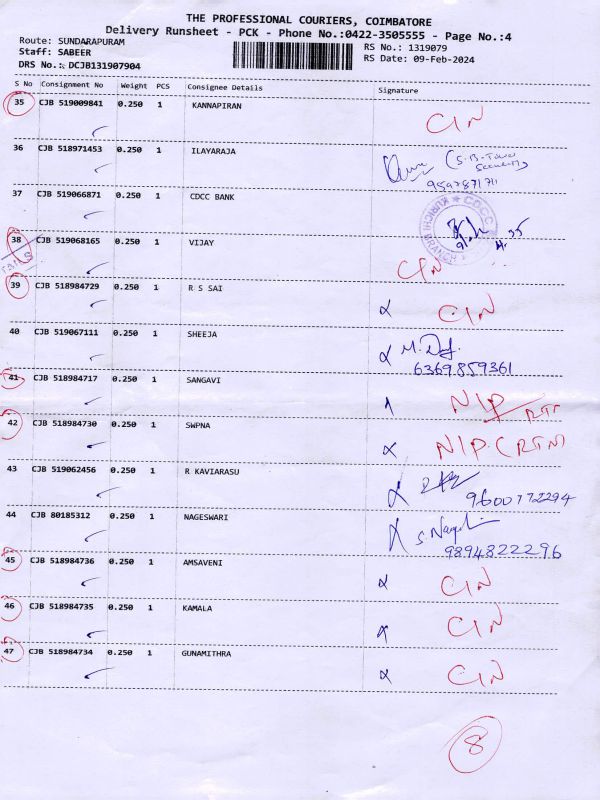 THE PROFESSIONAL COURIERS, COIMBATORE
Delivery Runsheet - PCK - Phone No.:0422-3505555 - Page No.:4
Route: SUNDARAPURAM
RS No.: 1319079
Staff: SABEER
RS Date: 09-Feb-2024
DRS No.: DCJB131907904
S No Consignment No Weight PCS Consignee Details Signature
35 CJB 519009841 0.250 1 KANNAPIRAN CIN
36 CJB 518971453 0.250 1 ILAYARAJA (S.B-Tower
Security)
37 CJB 519066871 0.250 1 CDCC BANK
CDCC
BRANCH
38 CJB 519068165 0.250 1 VIJAY
CIN
39 CJB 518984729 0.250 1 R S SAI CIN
40 CJB 519067111 0.250 1 SHEEJA
6369859361
41 CJB 518984717 0.250 1 SANGAVI N/P
42 CJB 518984730 0.250 1 SWPNA N/P (RTN)
43 CJB 519062456 0.250 1 R KAVIARASU
9600772294
44 CJB 80185312 0.250 1 NAGESWARI
9894822296
45 CJB 518984736 0.250 1 AMSAVENI CIN
46 CJB 518984735 0.250 1 KAMALA CIN
47 CJB 518984734 0.250 1 GUNAMITHRA CIN
8